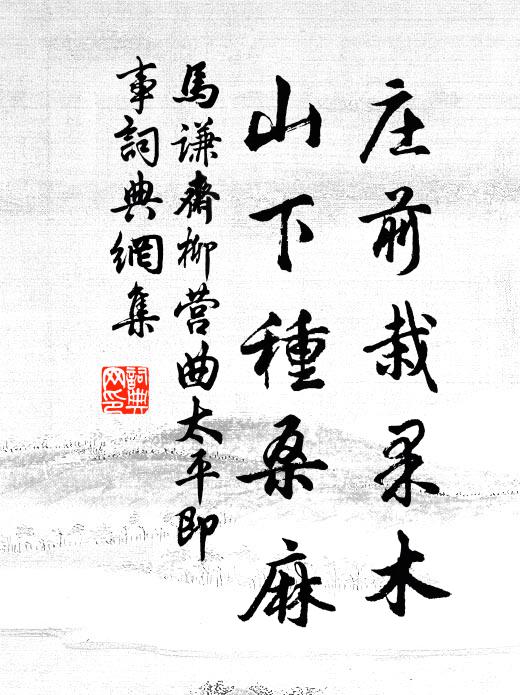 庄前栽果木
山下種桑麻
馬谦齋柳营曲太平即
事詞典網集
詞典网印